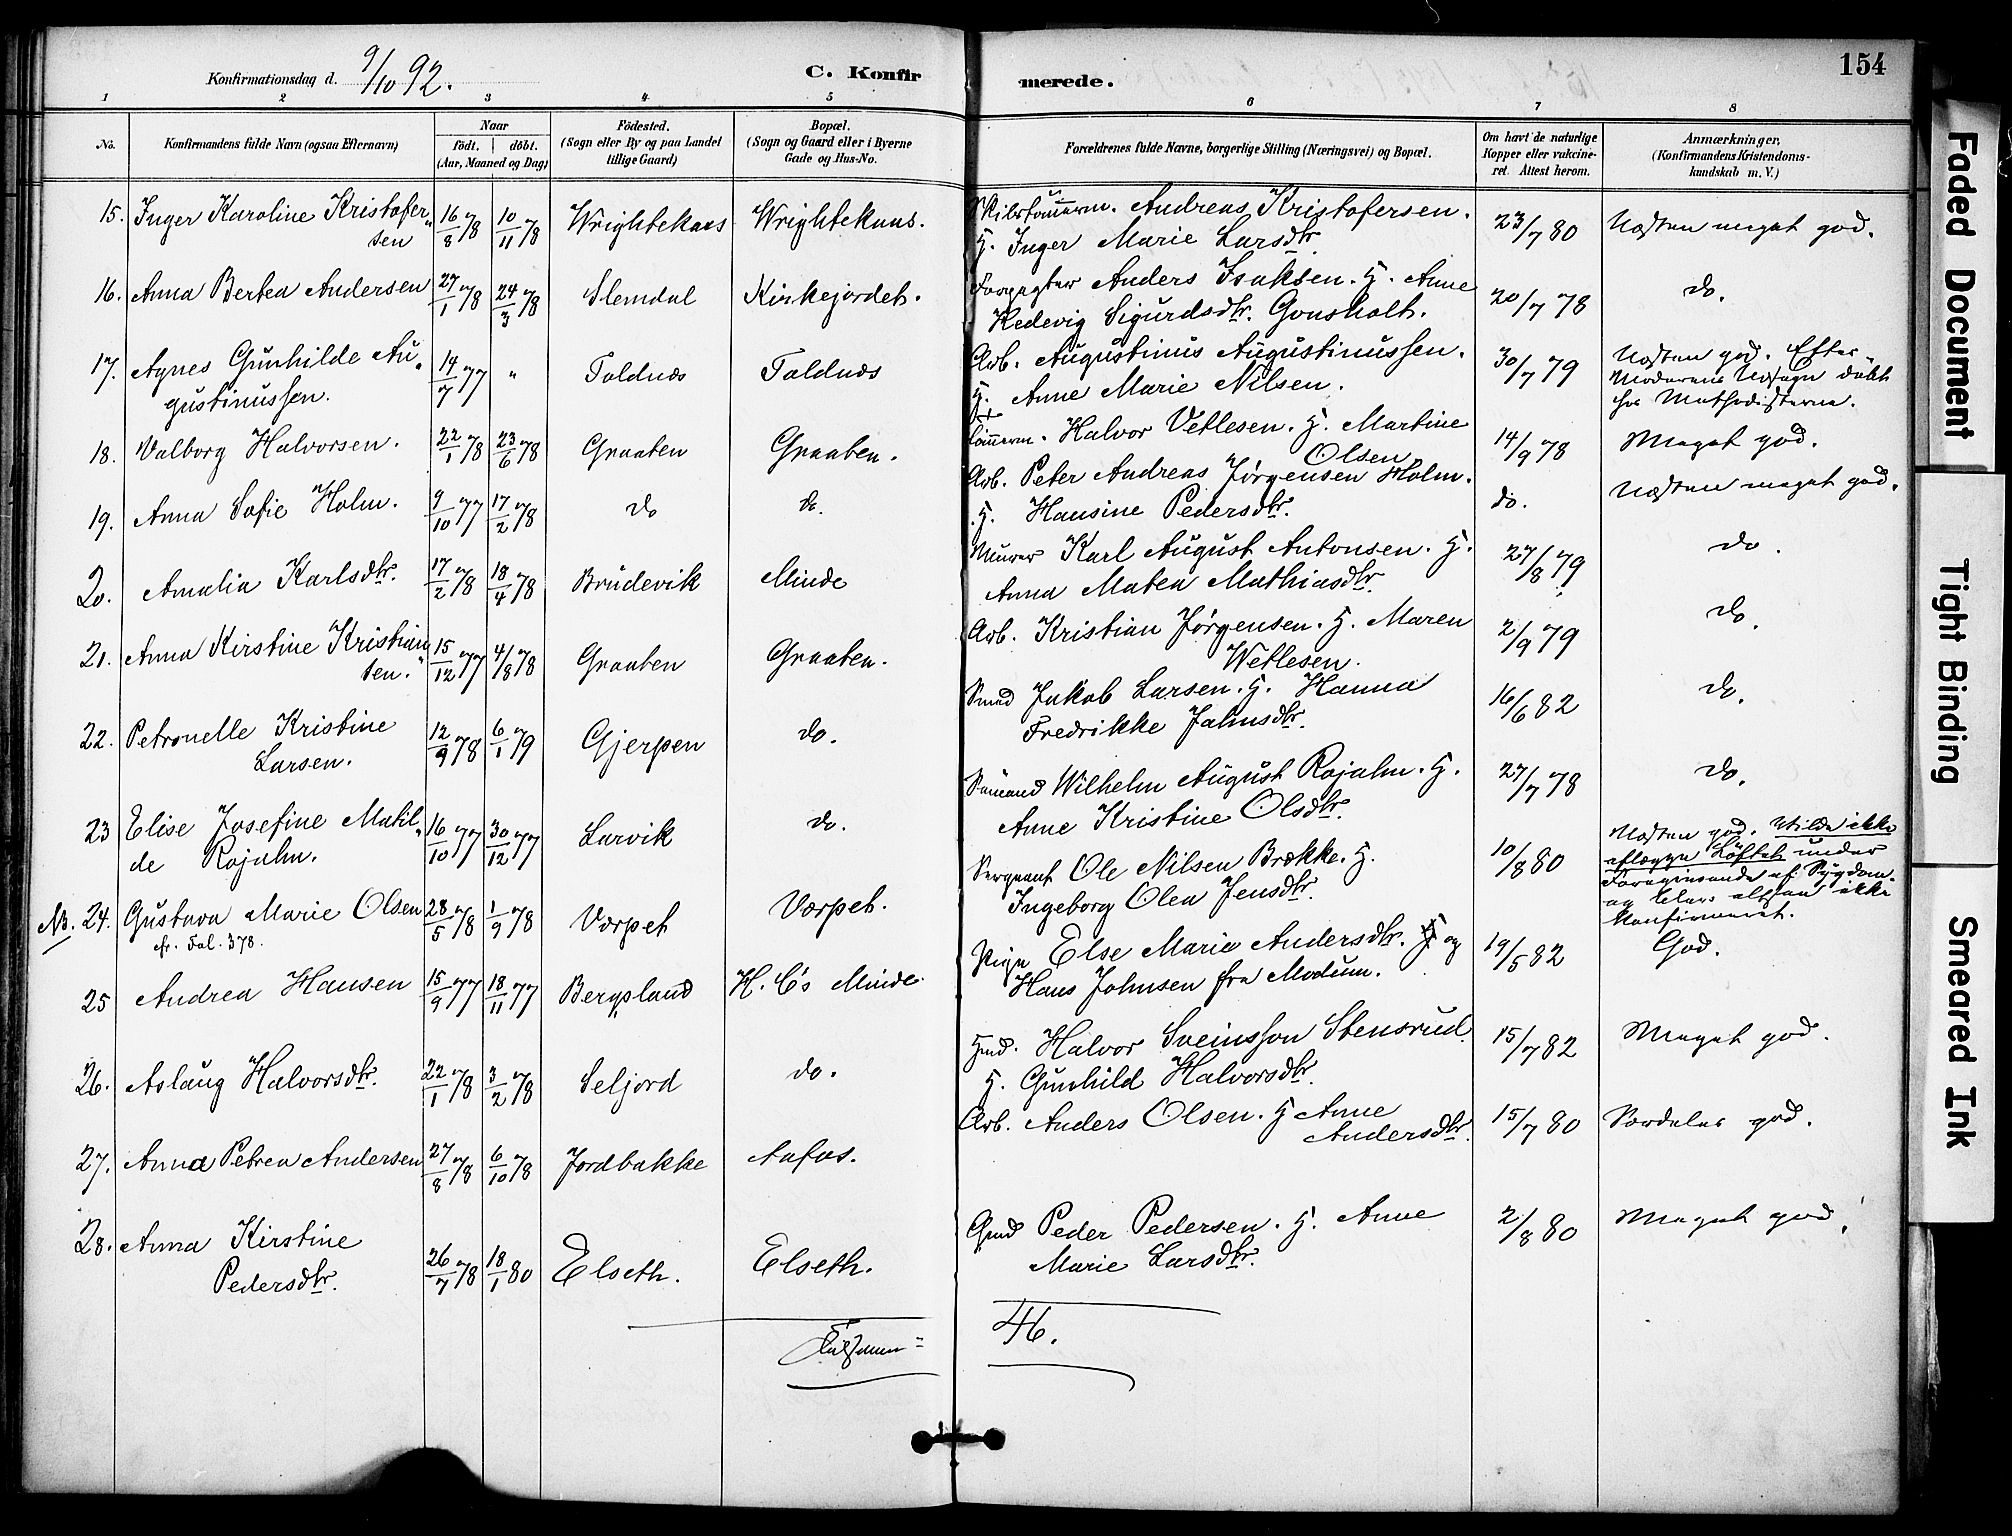 Konfirmationsdag d. 9/10 92.
C. Konfir
merede.
154
1 2 3 4 5 6 7 8
No.
Konfirmandens fulde Navn (ogsaa Efternavn)
Naar
födt. döbt.
(Aar, Maaned og Dag)
Födested.
(Sogn eller By og paa Landet
tillige Gaard)
Bopæl.
(Sogn og Gaard eller i Byerne
Gade og Hus-No.
Forældrenes fulde Navne, borgerlige Stilling (Næringsvei) og Bopæl.
Om havt de naturlige
Kopper eller vakcine-
ret. Attest herom.
Anmærkninger,
(Konfirmandens Kristendoms-
kundskab m. V.)
15. Inger Karoline Kristofer„ 16/8 78 10/11 78 Wrightekaas Wrightekaas. Andreas Kristofersen. 23/7 80 Næsten meget god.
sen H. Inger Marie Larsdtr.
16. Anna Bertea Andersen 27/1 78 24/3 78 Slemdal Kirkejordet. Forpagter Anders Isaksen. H. Anne 20/7 78 do.
Hedevig Sigurdsdtr. Gonsholt.
17. Agnes Gunhilde Au„ 14/7 77 " Foldnæs Foldnæs Arb. Augustinus Augustinussen. 30/7 79 Næsten god. Efter
gustinussen. H. Anne Marie Nilsen. Moderens Udsagn døbt
hos Methodisterne.
18. Valborg Halvorsen. 22/1 78 23/6 78 Graaten Graaten. Tømmerm. Halvor Vetlesen. H. Martine 14/9 78 Meget god.
Olsen
19. Anna Sofie Holm. 9/10 77 17/2 78 do do. Arb. Peter Andreas Jørgensen Holm. do. Næsten meget god.
H. Hansine Pedersdtr.
20. Amalia Karlsdtr. 17/2 78 18/4 78 Brüdevik Minde Murer Karl August Antonsen. H. 27/8 79 do.
Anna Matea Mathiasdtr.
21. Anna Kirstine Kristian 15/12 77 4/8 78 Graaten Graaten. Arb. Kristian Jørgensen. H. Maren 2/9 79 do.
sen." Wetlesen.
22. Petronelle Kristine 12/9 78 6/1 79 Gjerpen do. Smed Jakob Larsen. H. Hanna 16/6 82 do.
Larsen. Fredrikke Jahnsdtr.
23 Elise Josefine Matil„ 16/10 77 30/12 77 Larvik do. Sømand Wilhelm August Rojahn. H. 27/7 78 do.
de Rojahn. Anne Kristine Olsdtr.
NB. 24. Gustava Marie Olsen 28/5 78 1/9 78 Værpet Værpet. Sergeant Ole Nilsen Brække. H. 10/8 80 Næsten god. Vilde ikke
cfr. Fol. 378. Ingeborg Olea Jensdtr. aflægge Løftet under
Foregivende af Sygdom
og blev altsaa ikke
Konfirmeret.
25 Andrea Hansen 15/9 77 18/11 77 Bergsland H. C's Minde Pige Else Marie Andersdtr. og 19/5 82 God.
Hans Johnsen fra Modum.
26. Aslaug Halvorsdtr. 22/1 78 3/2 78 Seljord do. Halvor Sveinsson Stensrud. 15/7 82 Meget god.
H. Gunhild Halvorsdtr.
27. Anna Petrea Andersen 27/8 78 6/10 78 Jordbakke Aafos. Arb. Anders Olsen. H Anne 15/7 80 Særdeles god.
Andersdtr.
28. Anna Kirstine 26/7 78 18/1 80 Elseth. Elseth. Gmd Peder Pedersen. H. Anne 2/8 80 Meget god.
Pedersdtr. Marie Larsdtr.
Tilsammen = 46.
Faded Document
Tight Binding
Smeared Ink